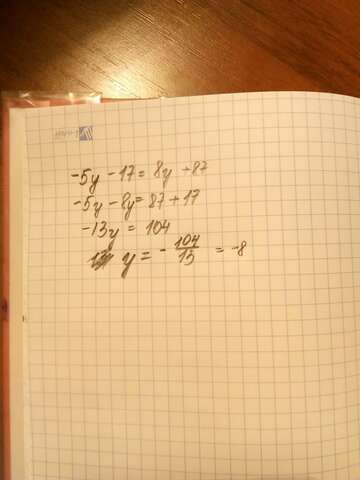 -5y - 17 = 8y + 87
-5y - 8y = 87 + 17
-13y = 104
y = - 104/13 = -8